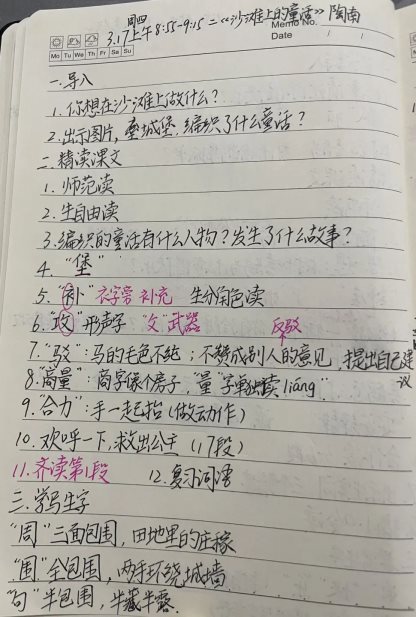 周四
3.17上午8:55-9:15 二《沙滩上的童话》陶南
Memo No.
Mo Tu We Th Fr Sa Su
Date / /
一.导入
1.你想在沙滩上做什么?
2.出示图片,垒城堡,编织了什么童话?
二.精读课文
1.师范读
2.生自由读
3.编织的童话有什么人物?发生了什么故事?
4."堡"
5."补"衣字旁 补充 生分角色读
6."攻"形声字 "攵"武器 反驳
7."驳":马的毛色不纯;不赞成别人的意见,提出自己建议
8."商量":商字像个房子,"量"字单独读liáng
9."合力":手一起抬(做动作)
10.欢呼一下,救出公主(17段)
11.齐读第1段 12.复习词语
三.学写生字
"周"三面包围,田地里的庄稼
"围"全包围,两手环绕城墙
"句"半包围,半藏半露.